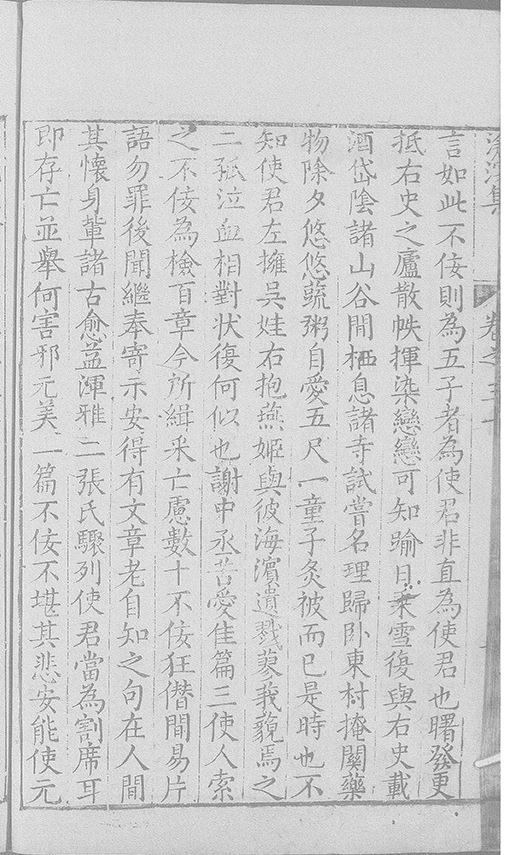 言如此不佞則為五子者為使君非直為使君也曙發更
抵右史之廬散帙揮染戀戀可知踰日乘雪復與右史載
酒岱陰諸山谷間栖息諸寺試嘗名理歸卧東村掩關藥
物除夕悠悠蔬粥自愛五尺一童子灸被而已是時也不
知使君左擁吳娃右抱燕姬與彼海濱遺戮蓼莪藐焉之
二孤泣血相對狀復何似也謝中丞苦愛佳篇三使人索
之不佞為檢百章今所緝釆亡慮數十不佞狂僭間易片
語勿罪後聞繼奉寄示安得有文章老自知之句在人間
其懷身輩諸古愈益渾雅二張氏驟列使君當為割席耳
即存亡並舉何害邪元美一篇不佞不堪其悲安能使元